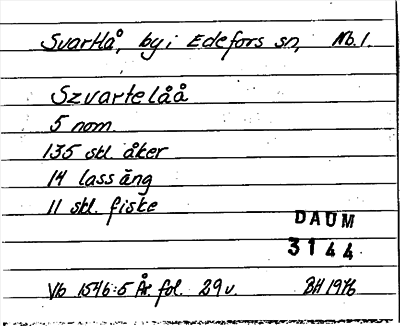 Svartlå, by i Edefors sn, Nb.l.
Szvartelåå
5 nom.
135 skl. åker
14 lass äng
11 skl. fiske
DAUM
3144
Vb 1546:5 År. fol. 29v. BH 1976